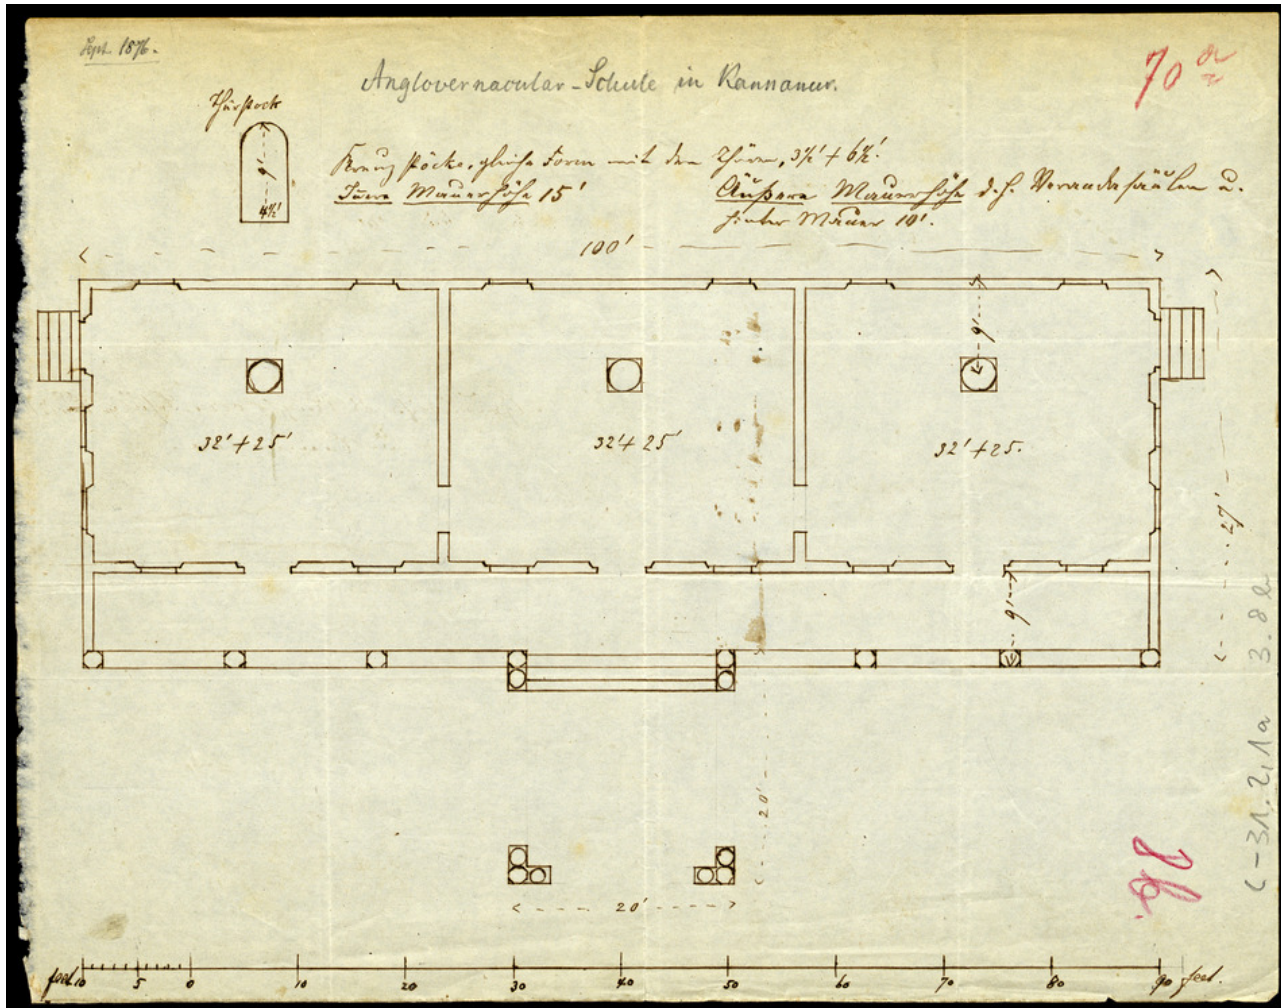 Sept. 1876.
Anglovernacular-Schule in Kannanur.
70 a
Thürstock
9'
4½'
Kreuzstöcke, gleiche Form mit den Thüren, 3½' + 6½'.
Innere Mauerhöhe 15'
Äußere Mauerhöhe d. h. Verandasäulen u.
hinter Mauer 10'.
100'
9'
32' + 25'
32' + 25'
32' + 25.
27'
9'
20'
20'
C-31.2,1a 3.8
feet 10 5 0 10 20 30 40 50 60 70 80 90 feet.